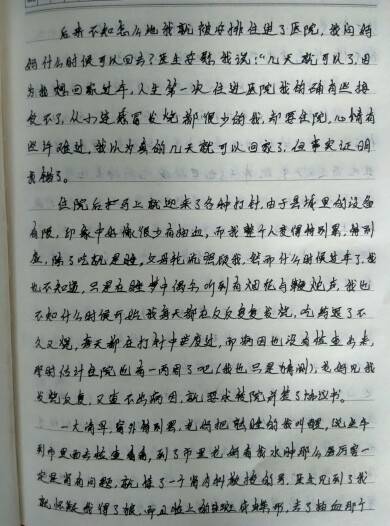 后来不知怎么地我就被安排住进了医院，我问妈
妈什么时候可以回去？医生安慰我说："几天就可以了，因
为我想回家过年，人生第一次住进医院我的确有些接
受不了，从小连感冒发烧都很少的我，却要住院，心情有
些许难过，我以为真的几天就可以回家了，但事实证明
我错了。
住院后扑马上就迎来了各种打针，由于县城里的设备
有限，印象中好像很少有抽血，而我整个人变得特别累，特别
虚，除了吃就是睡，父母轮流照顾我，然而什么时候过年了，我
也不知道，只是在睡梦中偶尔听到有烟花与鞭炮声，我也
不知什么时候开始，我每天都在反反复复发烧，吃药退了不
久又烧，每天都在打针中度过，而病因也没有检查出来，
那时估计住院也有一两周了吧（我也只是猜测），老妈见我
发烧反复，又查不出病因，就要求转院并签了协议书。
一大清早，窗外特别黑，老妈把熟睡的我叫醒，说坐车
到市里面去检查看看，到了市里 老妈看我水肿那么厉害一
定是肾有问题，就挂了一个肾内科教授的号，医生见到了我
就怀疑我得了狼，而且脸上的红斑 像蝶形，去了抽血那个